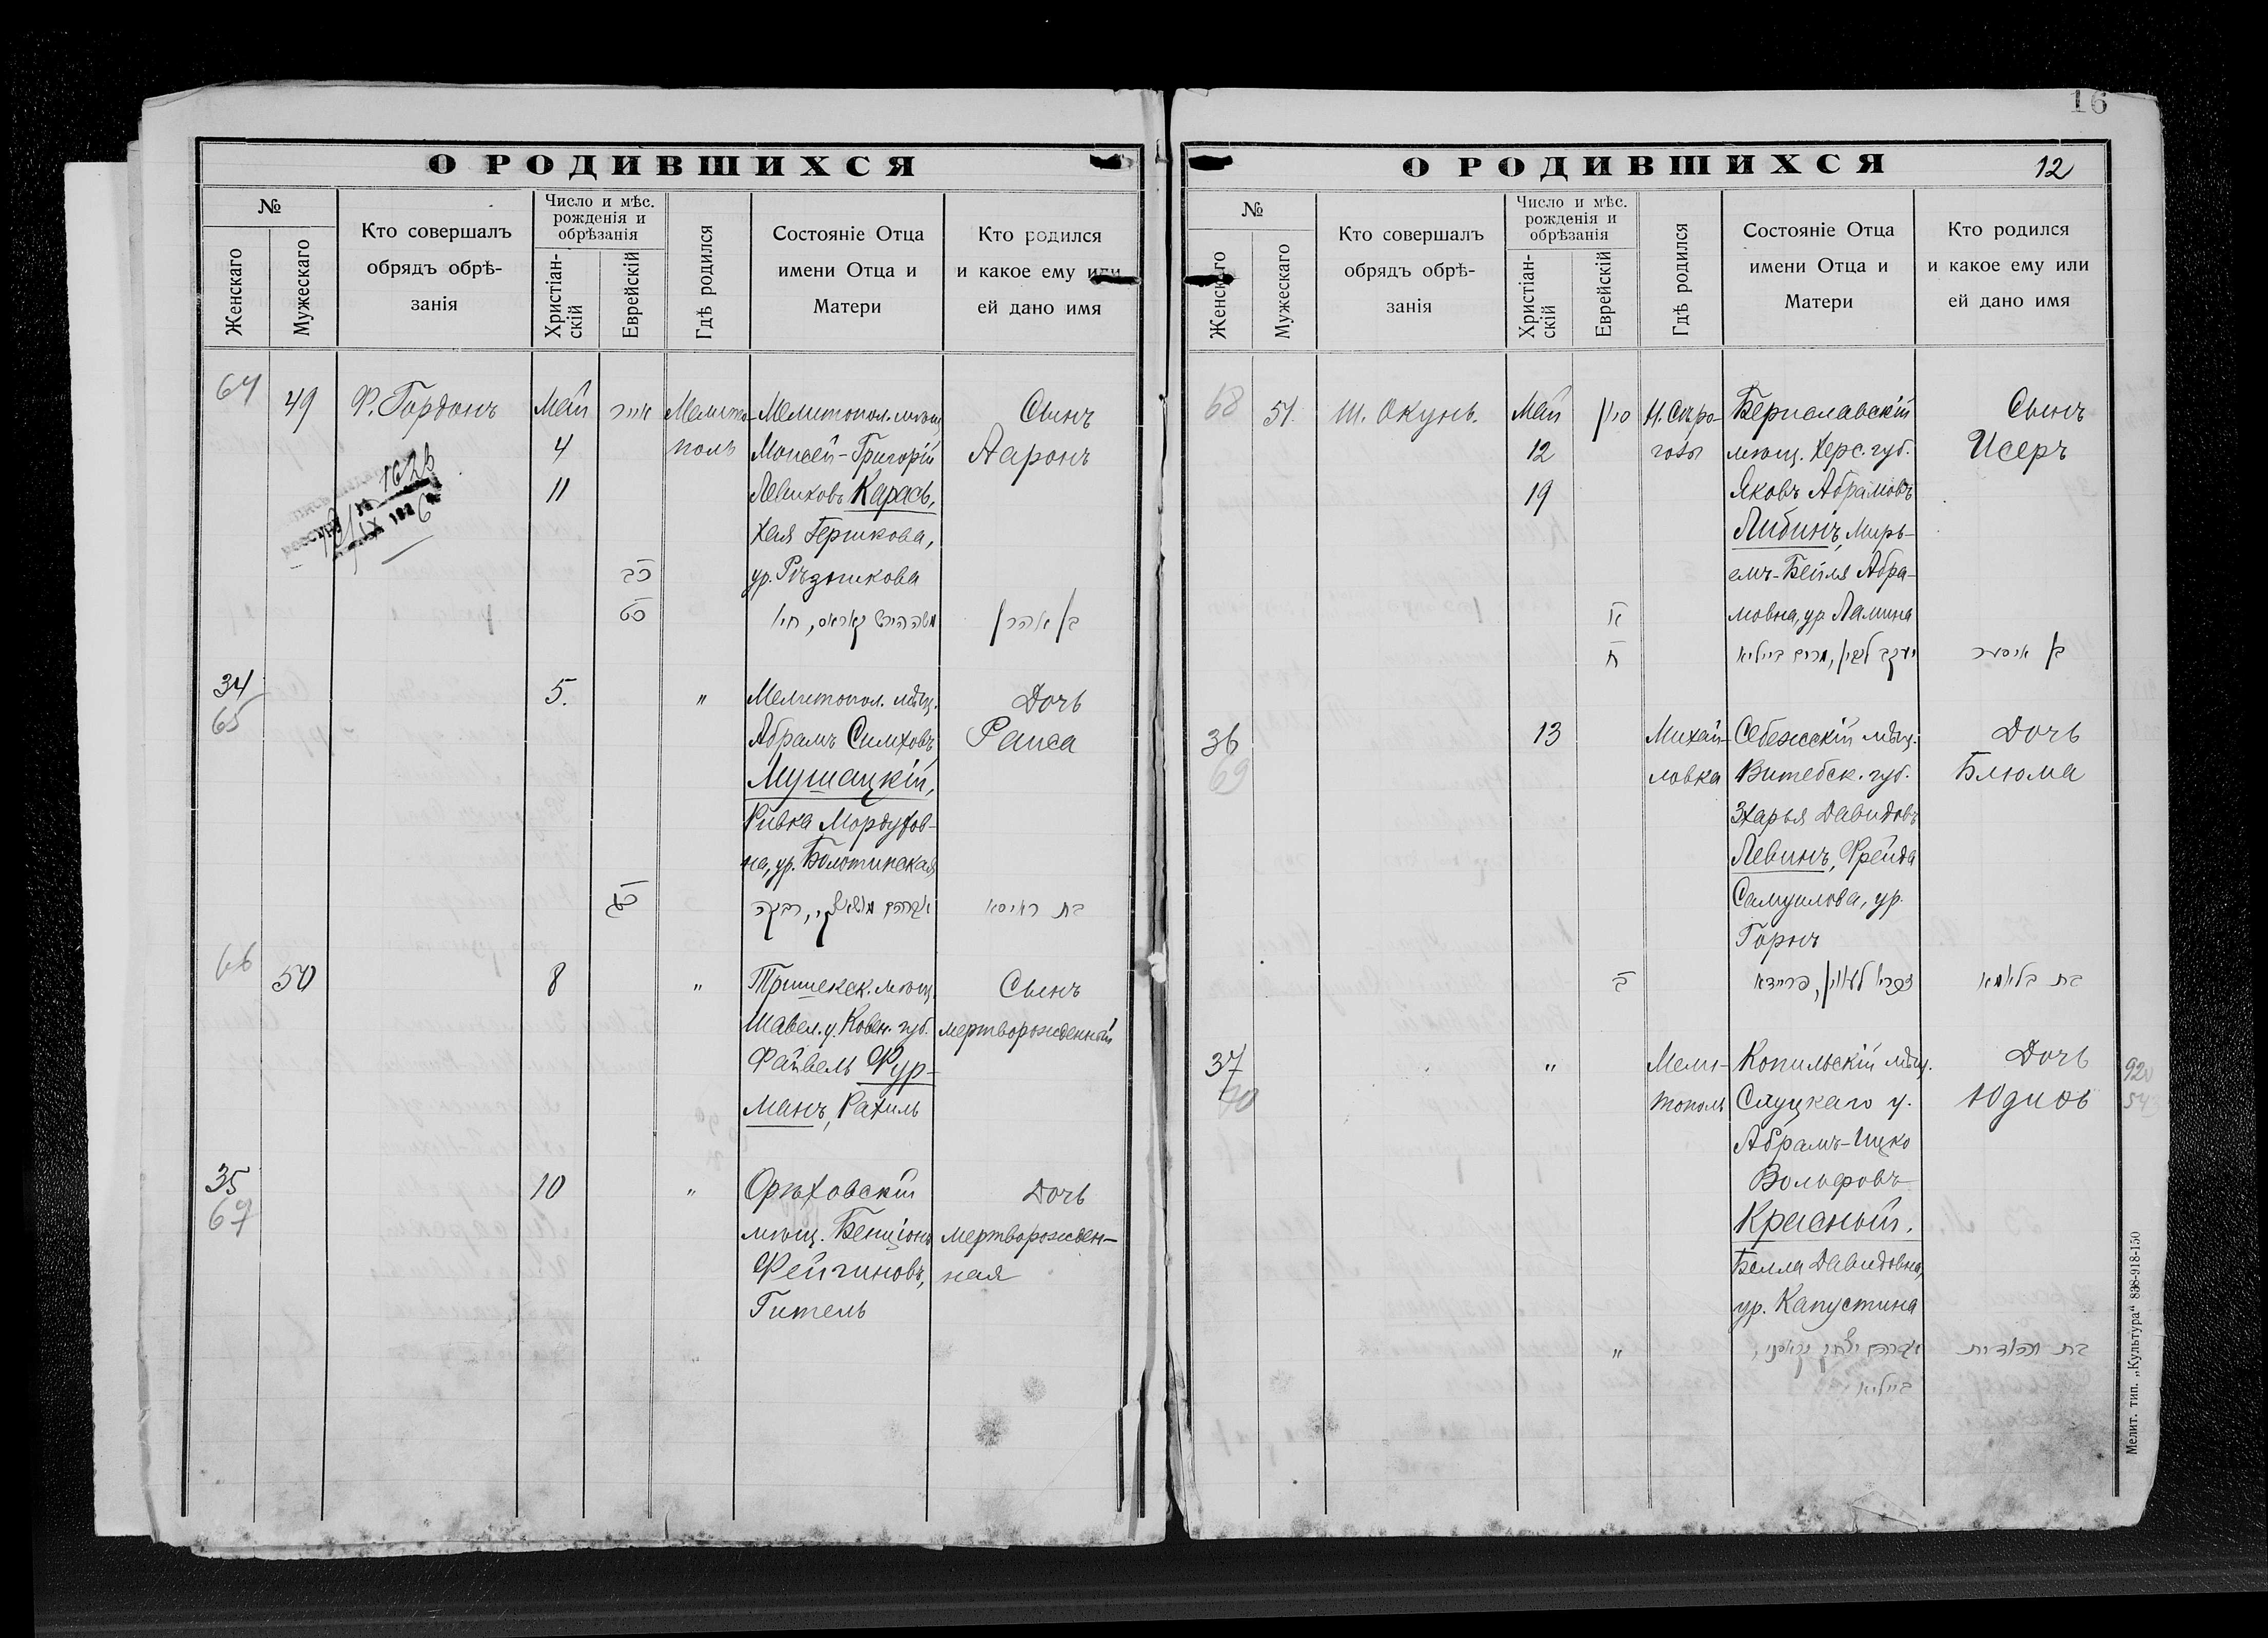 16
О РОДИВШИХСЯ
№
Женскаго
Мужескаго
Кто совершалъ
обрядъ обрѣ-
занія
Число и мѣс.
рожденія и
обрѣзанія
Христіан-
скій
Еврейскій
Гдѣ родился
Состояніе Отца
имени Отца и
Матери
Кто родился
и какое ему или
ей дано имя
64
49
Ф. Гордонъ
Май
4
11
אייר
כב
כט
Мелито-
поль
Мелитопол. мѣщ.
Моисей-Григорій
Левиковъ Карась,
Хая Гершкова,
ур. Рѣзникова
משה הירש קאראס, חיה
Сынъ
Ааронъ
בן אהרן
34
65
5.
"
Мелитопол. мѣщ.
Абрамъ Симховъ
Мушацкій,
Ривка Мордухов-
на, ур. Болотинская
Дочь
Раиса
בת ראיסא
66
50
8
"
Тришекск. мѣщ.
Шавел. у. Ковен. губ.
Файвель Фур-
манъ, Рахиль
Сынъ
мертворожденный
35
67
10
"
Орѣховскій
мѣщ. Бенціонъ
Фейгиновъ,
Гитель
Дочь
мертворожден-
ная
О РОДИВШИХСЯ
12
№
Женскаго
Мужескаго
Кто совершалъ
обрядъ обрѣ-
занія
Число и мѣс.
рожденія и
обрѣзанія
Христіан-
скій
Еврейскій
Гдѣ родился
Состояніе Отца
имени Отца и
Матери
Кто родился
и какое ему или
ей дано имя
68
51.
Ш. Окунь.
Май
12
19
סיון
א
ח
Н. Сѣро-
гозы
Бериславскій
мѣщ. Херс. губ.
Яковъ Абрамовъ
Либинъ, Мирь-
емъ-Бейля Абра-
мовна, ур. Ламина
יעקב ליבין, מרים ביילא
Сынъ
Исеръ
בן איסער
36
69
13
ב
Михай-
ловка
Себежскій мѣщ.
Витебск. губ.
Зхарья Давидовъ
Левинъ, Фрейда
Самуилова, ур.
Горнъ
זכריה לעווין, פריידא
Дочь
Блюма
בת בלומא
37
70
"
"
Мели-
тополь
Копильскій мѣщ.
Слуцкаго у.
Абрамъ-Ицко
Вольфовъ
Красный.
Белла Давидовна,
ур. Капустина
ביילא
Дочь
Юдиѳь
בת יהודית
Мелит. тип. „Культура“ 898-918-150